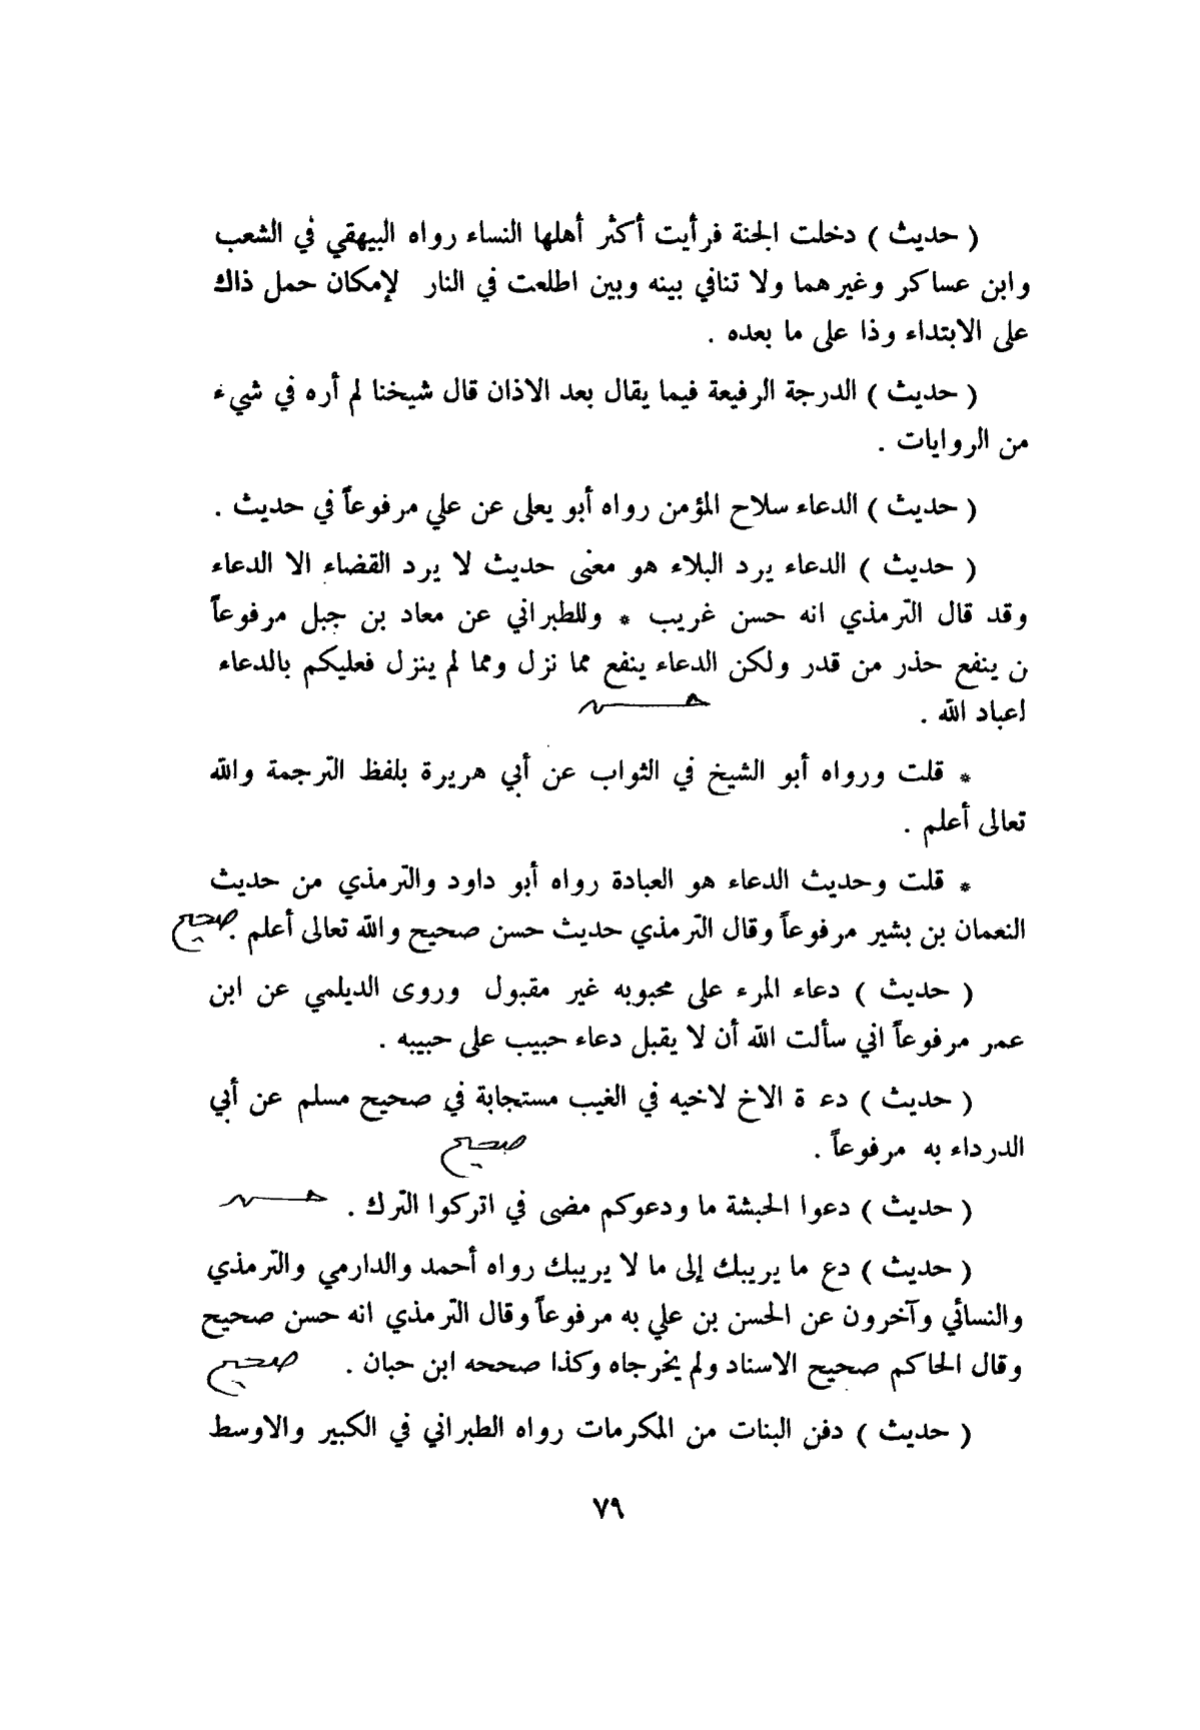 ( حديث ) دخلت الجنة فرأيت أكثر أهلها النساء رواه البيهقي في الشعب
وابن عساكر وغيرهما ولا تنافي بينه وبين اطلعت في النار لإمكان حمل ذاك
على الابتداء وذا على ما بعده .
( حديث ) الدرجة الرفيعة فيما يقال بعد الاذان قال شيخنا لم أره في شيء
من الروايات .
( حديث ) الدعاء سلاح المؤمن رواه أبو يعلى عن علي مرفوعاً في حديث .
( حديث ) الدعاء يرد البلاء هو معنى حديث لا يرد القضاء الا الدعاء
وقد قال الترمذي انه حسن غريب * وللطبراني عن معاد بن جبل مرفوعاً
ن ينفع حذر من قدر ولكن الدعاء ينفع مما نزل ومما لم ينزل فعليكم بالدعاء
اعباد الله . حسن
* قلت ورواه أبو الشيخ في الثواب عن أبي هريرة بلفظ الترجمة والله
تعالى أعلم .
* قلت وحديث الدعاء هو العبادة رواه أبو داود والترمذي من حديث
النعمان بن بشير مرفوعاً وقال الترمذي حديث حسن صحيح والله تعالى أعلم . صحيح
( حديث ) دعاء المرء على محبوبه غير مقبول وروى الديلمي عن ابن
عمر مرفوعاً اني سألت الله أن لا يقبل دعاء حبيب على حبيبه .
( حديث ) دع ة الاخ لاخيه في الغيب مستجابة في صحيح مسلم عن أبي
الدرداء به مرفوعاً . صحيح
( حديث ) دعوا الحبشة ما ودعوكم مضى في اتركوا الترك . حسن
( حديث ) دع ما يريبك إلى ما لا يريبك رواه أحمد والدارمي والترمذي
والنسائي وآخرون عن الحسن بن علي به مرفوعاً وقال الترمذي انه حسن صحيح
وقال الحاكم صحيح الاسناد ولم يخرجاه وكذا صححه ابن حبان . صحيح
( حديث ) دفن البنات من المكرمات رواه الطبراني في الكبير والاوسط
٧٩